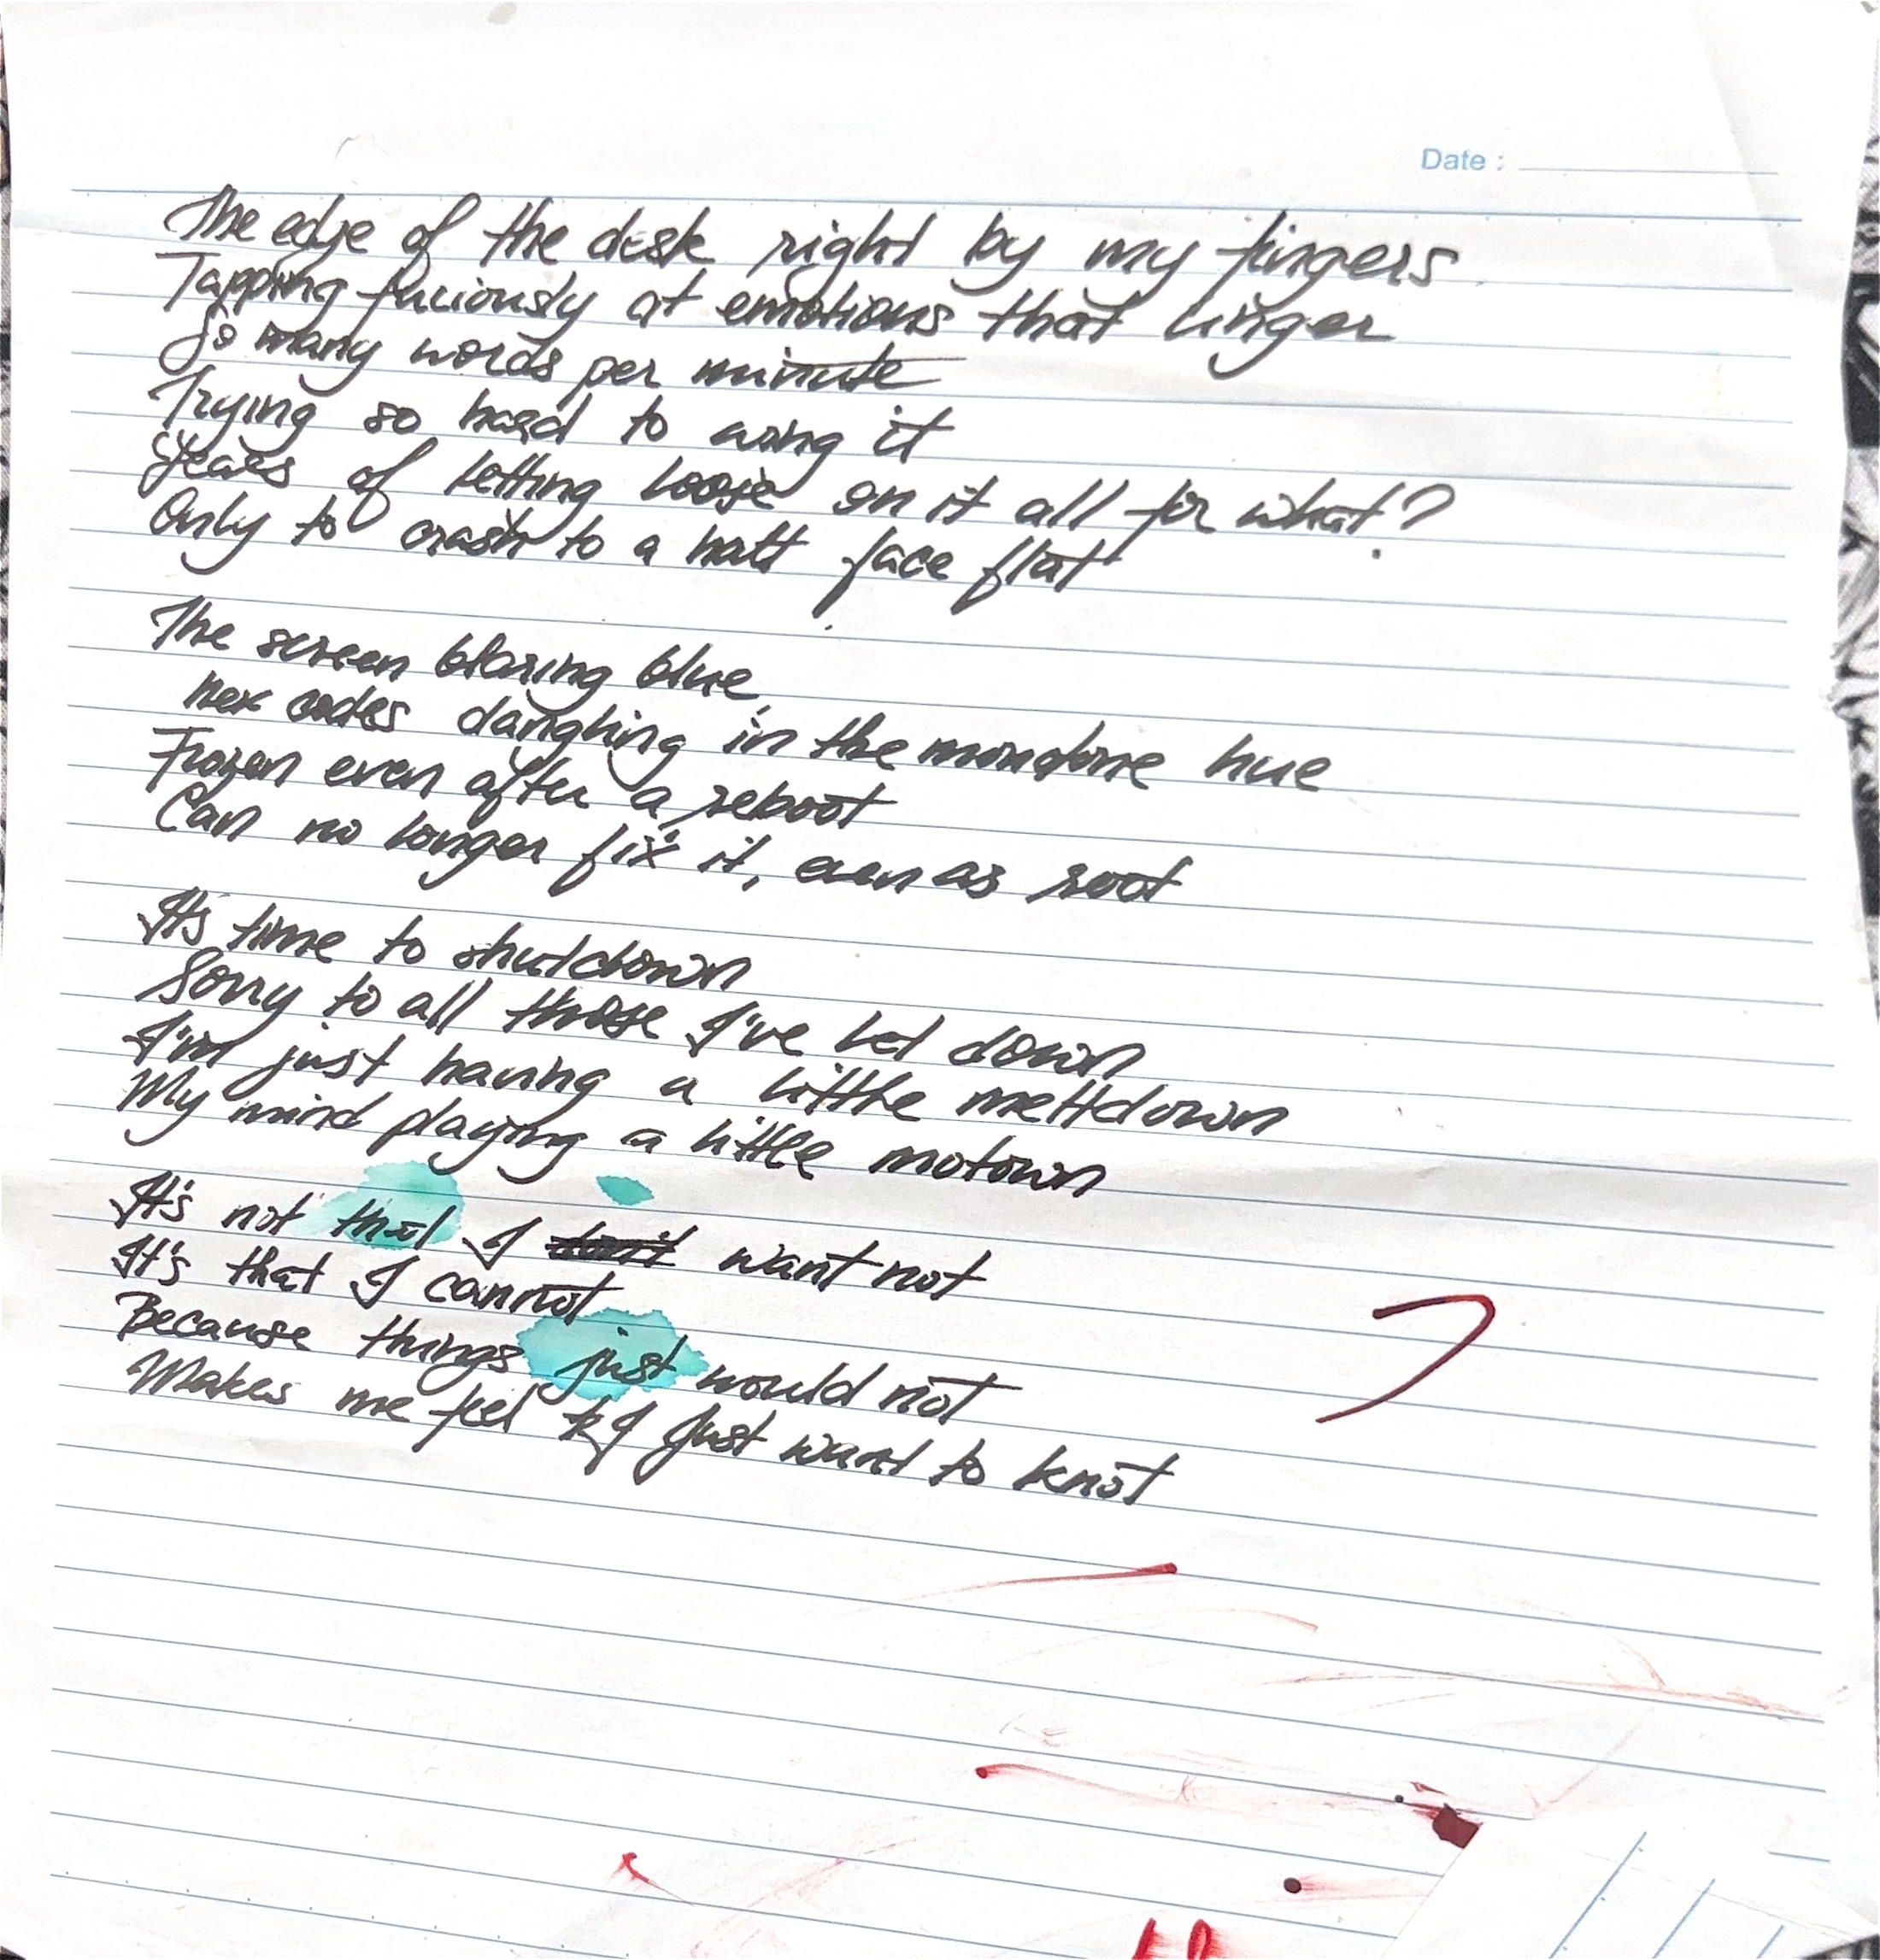 Date :
The edge of the desk right by my fingers
Tapping furiously at emotions that linger
So many words per minute
Trying so hard to wing it
Years of letting loose on it all for what?
Only to crash to a halt face flat
The screen blaring blue,
hex codes dangling in the monotone hue
Frozen even after a reboot
Can no longer fix it, even as root
It's time to shutdown
Sorry to all those I've let down
I'm just having a little meltdown
My mind playing a little motown
It's not that I want not
It's that I cannot
Because things just would not
Makes me feel I just want to knot